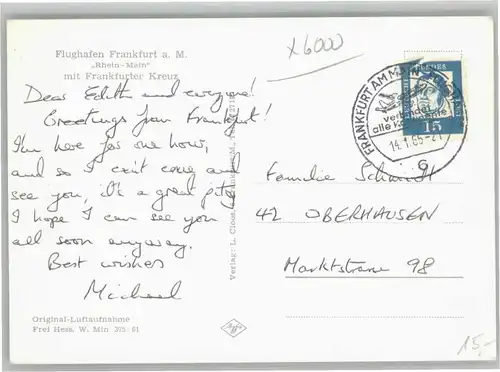 Flughafen Frankfurt a. M.
„Rhein-Main"
mit Frankfurter Kreuz
x6000
Dear Edith and everyone!
Greetings from Frankfurt!
I'm here for one hour,
and so I can't come and
see you, it's a great pity.
I hope I can see you
all soon anyway.
Best wishes
Michael
Original-Luftaufnahme
Frei Hess. W. Min 375/61
Verlag: L. Cloos
Agfa
FRANKFURT AM MAIN
14.1.65-21
15
Familie Schmidt
42 OBERHAUSEN
Marktstrasse 98
15,-